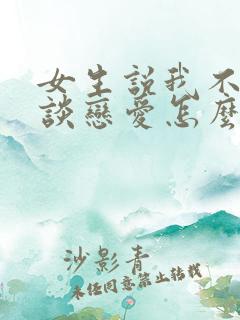 女生說我不
談戀愛怎麼
沙影青
未经同意禁止转载